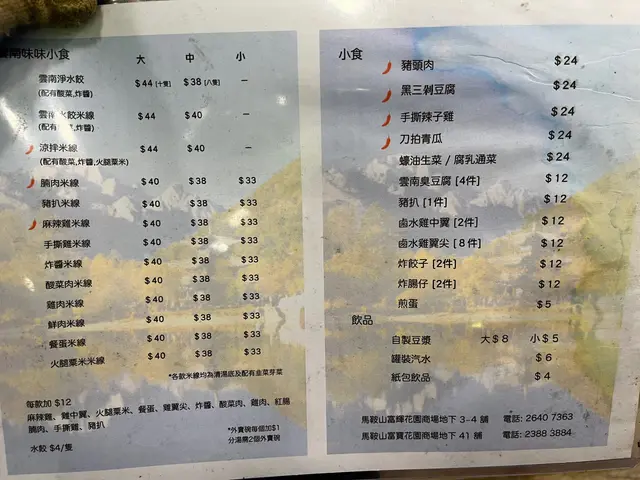 南味味小食 大 中 小
雲南淨水餃 $44 [十隻] $38 [八隻] –
(配有酸菜,炸醬)
雲南水餃米線 $44 $40 –
(配有酸菜,炸醬)
涼拌米線 $44 $40 –
(配有酸菜,炸醬,火腿菜米)
腩肉米線 $40 $38 $33
豬扒米線 $40 $38 $33
麻辣雞米線 $40 $38 $33
手撕雞米線 $40 $38 $33
炸醬米線 $40 $38 $33
酸菜肉米線 $40 $38 $33
雞肉米線 $40 $38 $33
鮮肉米線 $40 $38 $33
餐蛋米線 $40 $38 $33
火腿粟米米線 $40 $38 $33
*各款米線均為清湯底及配有韭菜芽菜
每款加 $12
麻辣雞、雞中翼、火腿粟米、餐蛋、雞翼尖、炸醬、酸菜肉、雞肉、紅腸
腩肉、手撕雞、豬扒
水餃 $4/隻
*外賣碗每個加$1
分湯需2個外賣碗
小食
豬頭肉 $24
黑三剁豆腐 $24
手撕辣子雞 $24
刀拍青瓜 $24
蠔油生菜 / 腐乳通菜 $24
雲南臭豆腐 [4件] $12
豬扒 [1件] $12
鹵水雞中翼 [2件] $12
鹵水雞翼尖 [8件] $12
炸餃子 [2件] $12
炸腸仔 [2件] $12
煎蛋 $5
飲品
自製豆漿 大$8 小$5
罐裝汽水 $6
紙包飲品 $4
馬鞍山富輝花園商場地下 3-4 舖 電話: 2640 7363
馬鞍山富寶花園商場地下 41 舖 電話: 2388 3884